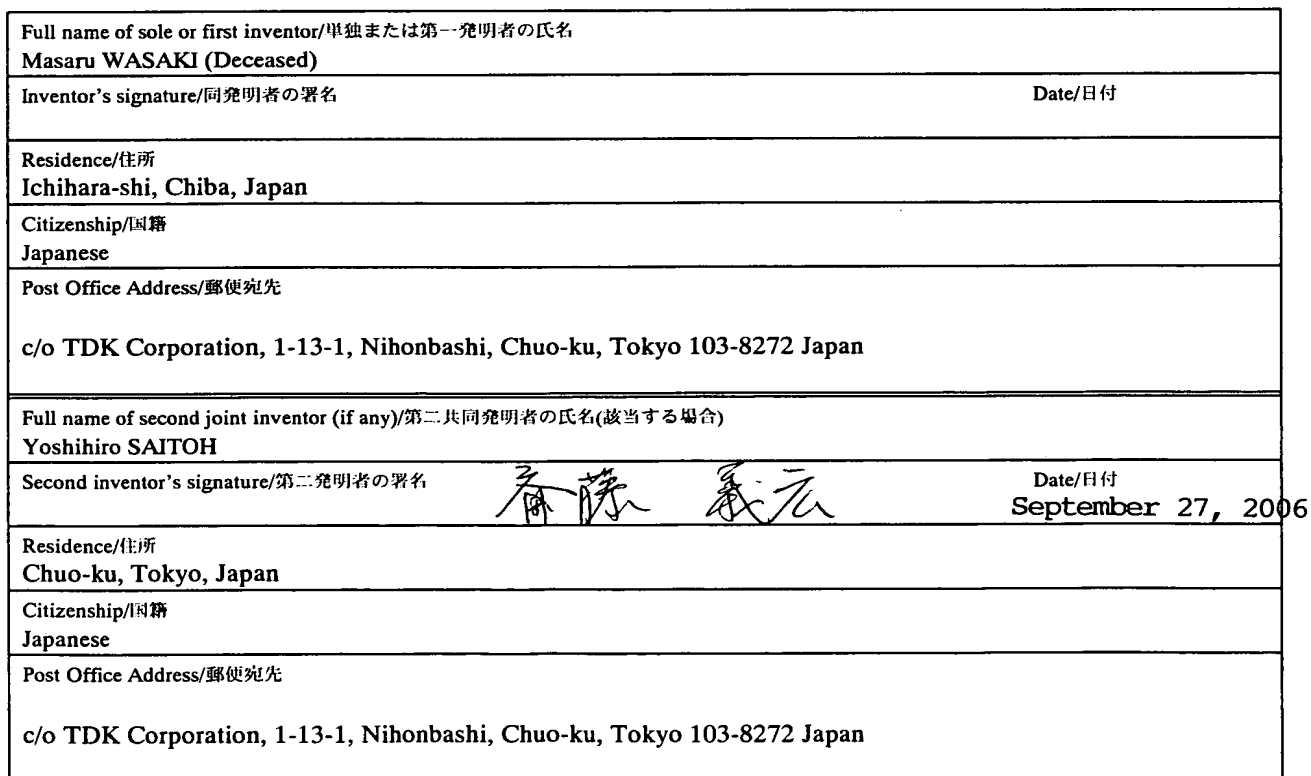 Full name of sole or first inventor/単独または第一発明者の氏名
Masaru WASAKI (Deceased)
Inventor's signature/同発明者の署名 Date/日付
Residence/住所
Ichihara-shi, Chiba, Japan
Citizenship/国籍
Japanese
Post Office Address/郵便宛先
c/o TDK Corporation, 1-13-1, Nihonbashi, Chuo-ku, Tokyo 103-8272 Japan
Full name of second joint inventor (if any)/第二共同発明者の氏名(該当する場合)
Yoshihiro SAITOH
Second inventor's signature/第二発明者の署名 斉藤 義広 Date/日付
September 27, 2006
Residence/住所
Chuo-ku, Tokyo, Japan
Citizenship/国籍
Japanese
Post Office Address/郵便宛先
c/o TDK Corporation, 1-13-1, Nihonbashi, Chuo-ku, Tokyo 103-8272 Japan